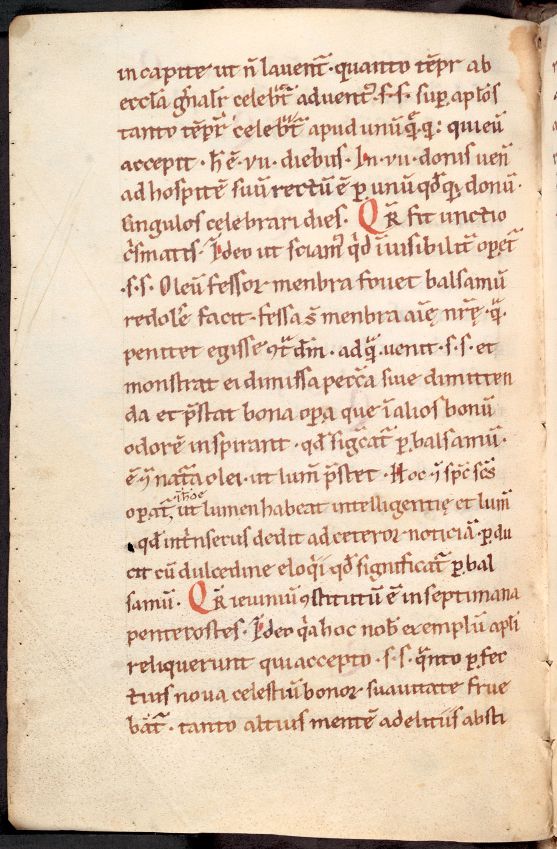 in capite ut n̄ lavent᷑ · quanto tēpr ab
eccl̄a gn̄alr celebrat᷑ advent᷒ · s · s · sup̱ ap̄los
tanto tēpr᷑ celebrat᷑ apud unū q̄q; qui eū
accepit · h̄ ē · vii · diebus · In · vii · donis ueñ
ad hospitē suū rectū ē p̱ unū qd̄q; donū ·
singulos celebrari dies · Qr̄ fit unctio
cͥsmatis · Ideo ut sciam᷒ qd̄ īuisibilit᷑ op̱et᷑
· s · s · Oleū fessor menbra fouet balsamū
redolē facit · fessa s̄ menbra aīę nr̄ę · q̄
penitet egisse ꝯt᷑ dm̄ · ad q̄ uenit · s · s · et
monstrat ei dimissa pecc̄a siue dimitten
da et p̄stat bona op̱a que ī alios bonū
odorē inspirant · qd̄ sig̅cat᷑ p̱ balsamū ·
ē · ī nat᷑a olei · ut lum̄ p̄stet · Hoc · ī sp̄c sc̄s
op̱at᷑ ī hoc ut lumen habeat intelligentię et lum̄
qd̄ int̄nsecus dedit ad ceteror noticiā · p̱du
cit cū dulcedine eloqͥi qd̄ significat᷑ p̱ bal
samū · Qr̄ ieiuniū ꝯstitutū ē in septimana
pentecostes · Ideo qͣa hoc nob̄ exemplū ap̄li
reliquerunt qui accepto · s · s · qͣnto p̱fec
tius noua celestiū bonor suauitate frue
bāt᷑ · tanto altius mentē a delitiis absti